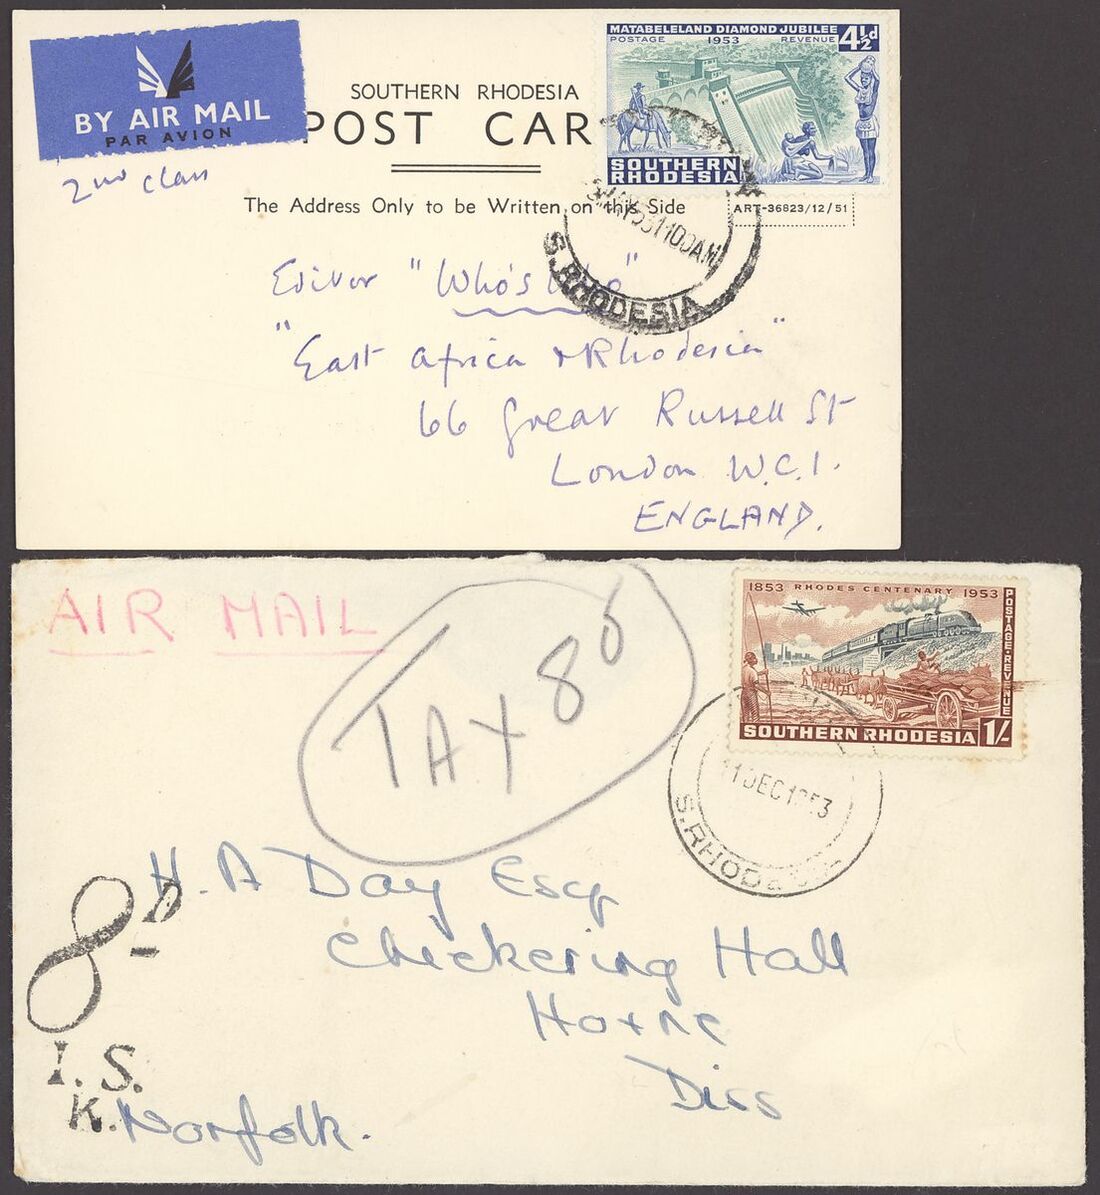 BY AIR MAIL
PAR AVION
2nd Class
SOUTHERN RHODESIA
POST CAR
The Address Only to be Written on this Side
MATABELELAND DIAMOND JUBILEE
POSTAGE 1953 REVENUE 4½d
SOUTHERN
RHODESIA
ART-36823/12/51
1100AM
S. RHODESIA
Editor "Who's Who"
"East Africa & Rhodesia"
66 Great Russell St
London W.C.1.
ENGLAND.
AIR MAIL
TAX 80
1853 RHODES CENTENARY 1953
POSTAGE·REVENUE
SOUTHERN RHODESIA 1/-
11 DEC 1953
S. RHODESIA
H. A Day Esq
Checkering Hall
Hoxne
Diss
Norfolk.
8D
I. S.
K.